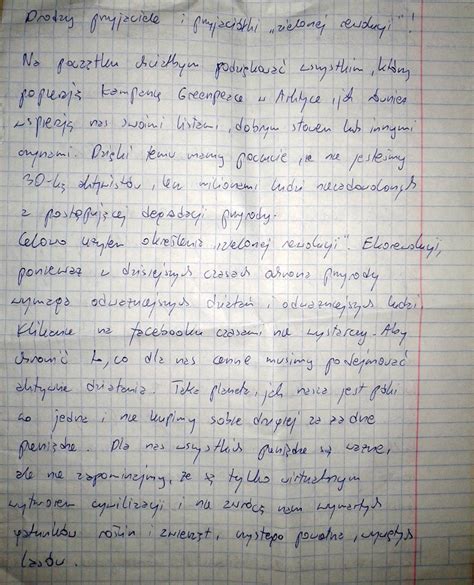 Drodzy przyjaciele i przyjaciółki „zielonej rewolucji"!
Na początku chciałbym podziękować wszystkim, którzy
popierają kampanię Greenpeace w Arktyce, jak również
wspierają nas swoimi listami, dobrym słowem lub innymi
czynami. Dzięki temu mamy poczucie, że nie jesteśmy
30-ką aktywistów, lecz milionami ludzi niezadowolonych
z postępującej degradacji przyrody.
Celowo użyłem określenia „zielonej rewolucji". Ekorewolucji,
ponieważ w dzisiejszych czasach ochrona przyrody
wymaga odważniejszych działań i odważniejszych ludzi.
Klikanie na facebooku czasami nie wystarczy. Aby
chronić to, co dla nas cenne musimy podejmować
aktywne działania. Taka planeta, jak nasza jest póki
co jedna i nie kupimy sobie drugiej za żadne
pieniądze. Dla nas wszystkich pieniądze są ważne,
ale nie zapominajmy, że są tylko wirtualnym
wytworem cywilizacji i nie zwrócą nam wymarłych
gatunków roślin i zwierząt, wyciętych
lasów.